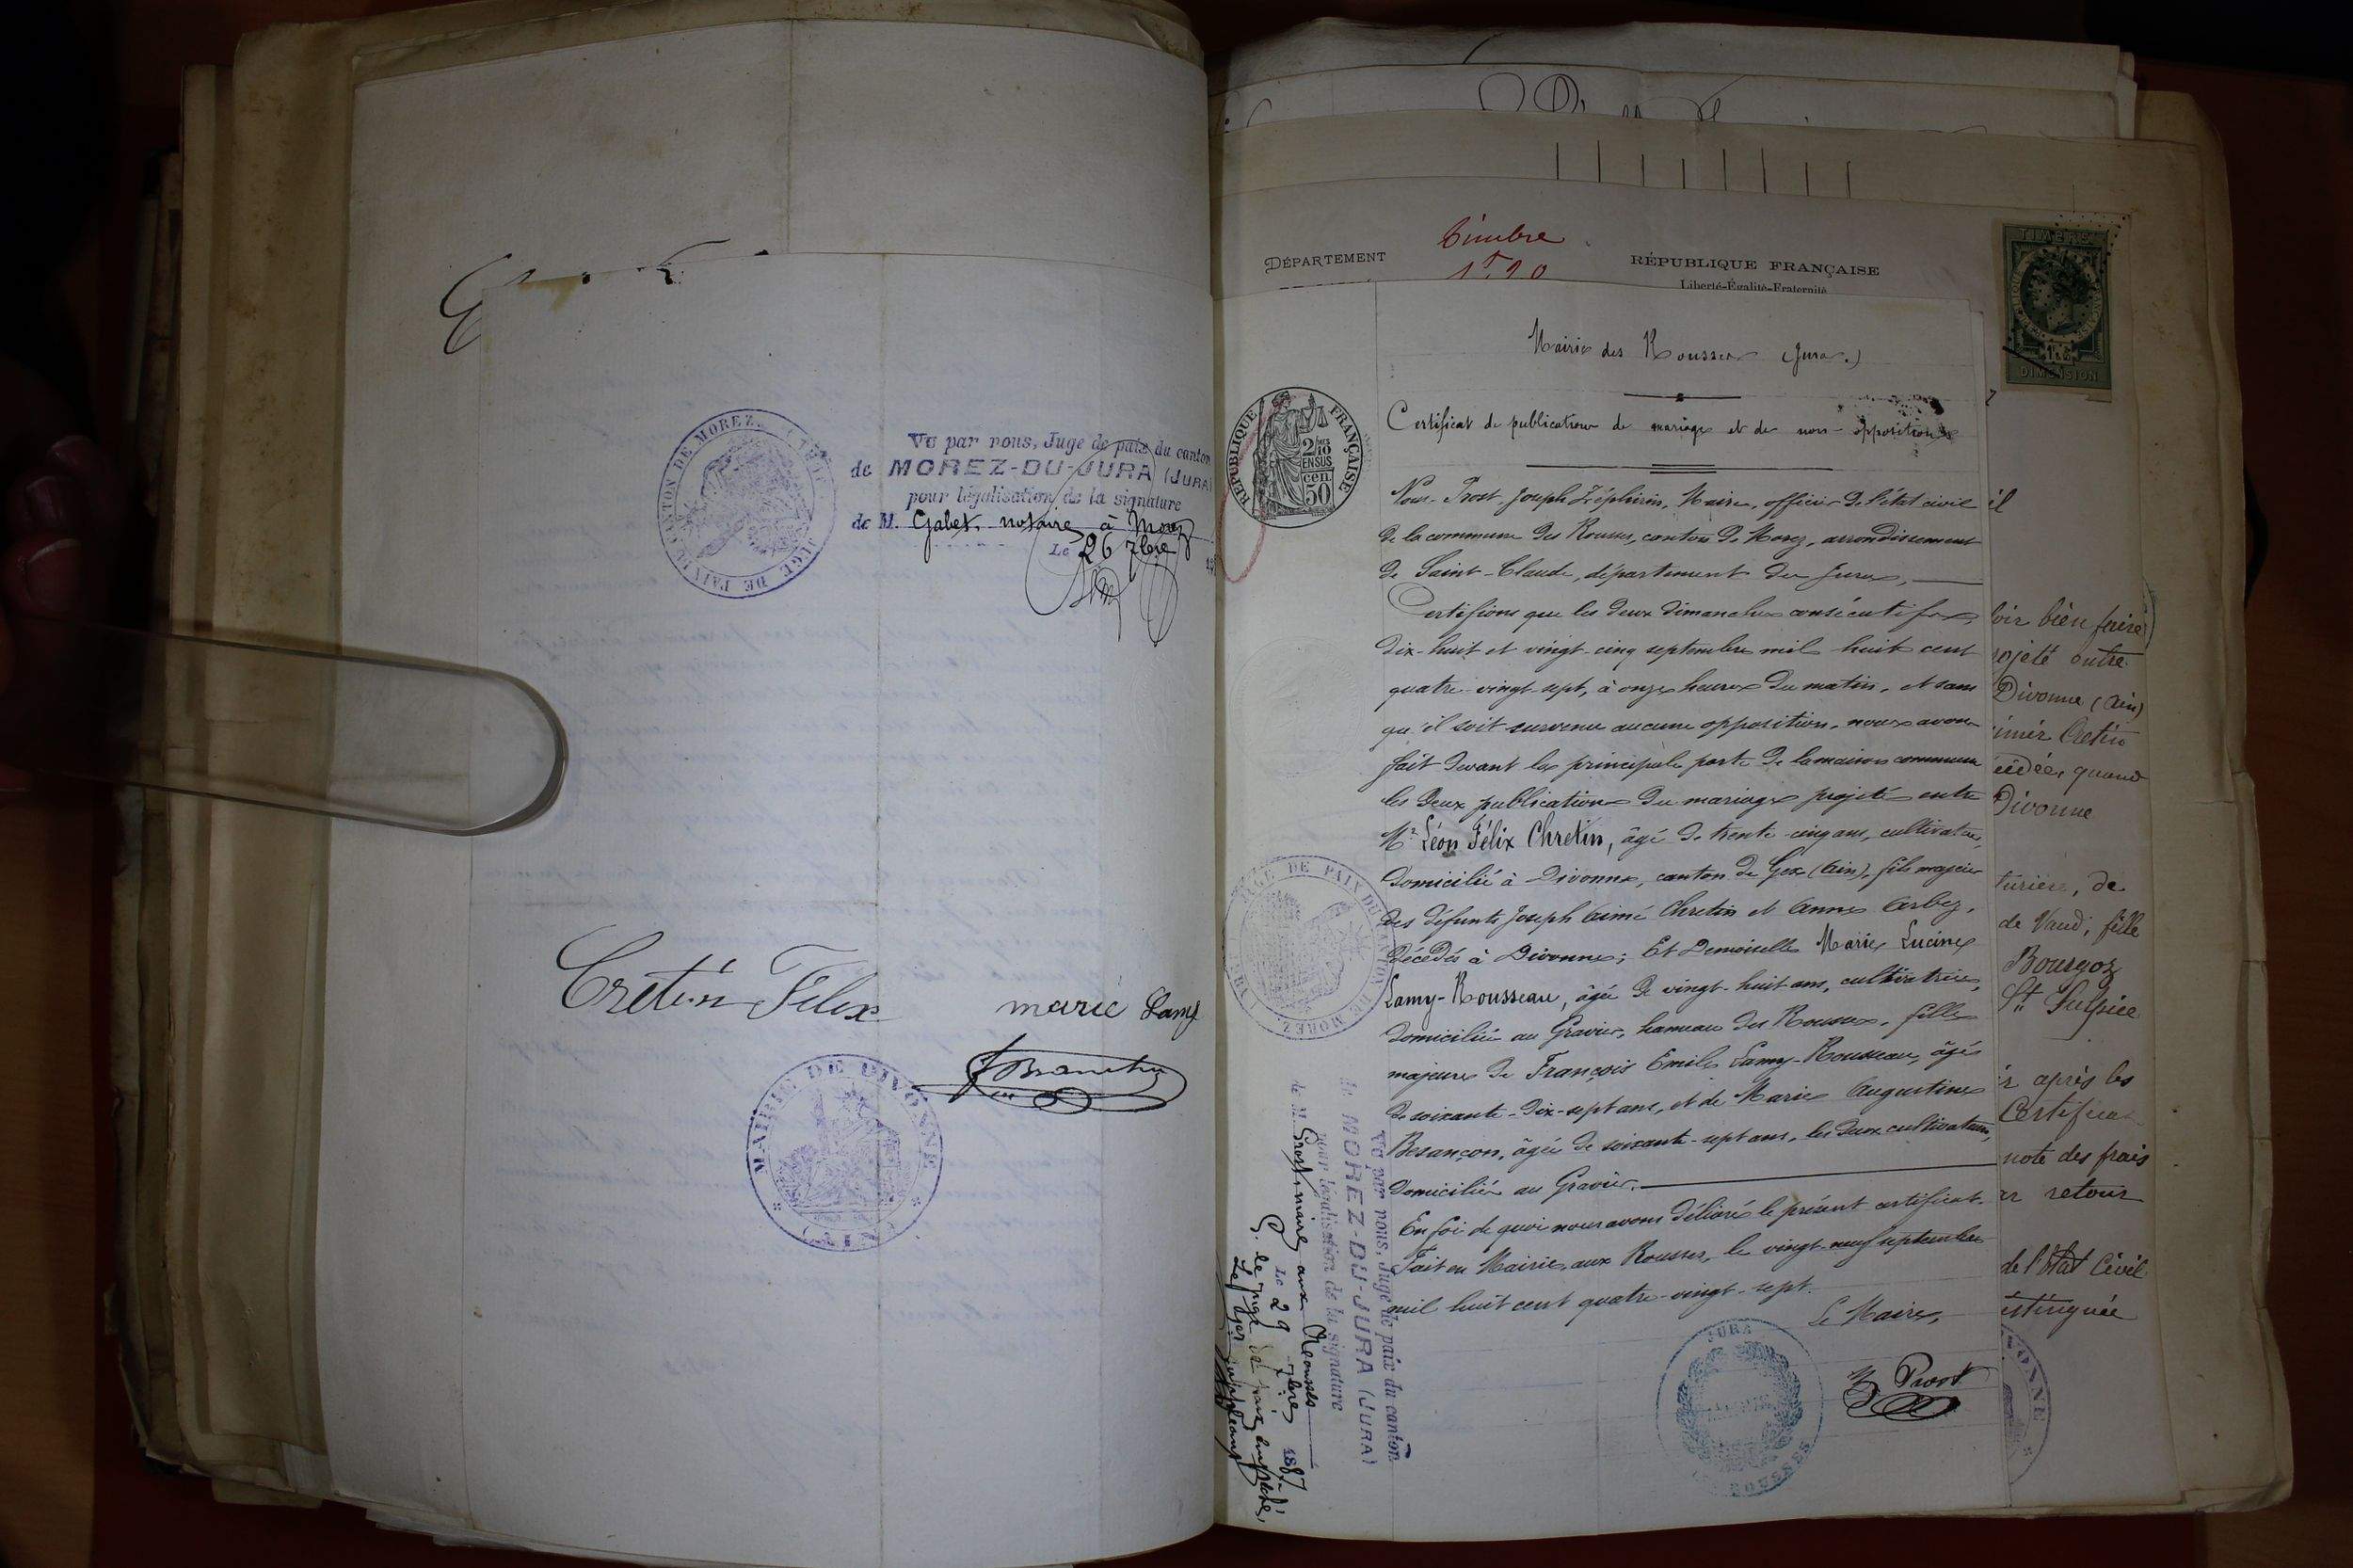 JUGE DE PAIX DU CANTON DE MOREZ
Vu par nous, Juge de paix du canton
de MOREZ-DU-JURA (JURA)
pour légalisation de la signature
de M. Gabet, notaire à Morez
Le 26 7bre
Cretin Félix
marie Lamy
MAIRIE DE DIVONNE
(AIN)
DÉPARTEMENT
Timbre
RÉPUBLIQUE FRANÇAISE
Liberté-Égalité-Fraternité
TIMBRE
DIMENSION
Mairie des Rousses (Jura.)
RÉPUBLIQUE FRANÇAISE
2/10
EN SUS
50 cen.
Certificat de publication de mariage et de non-opposition
Nous, Prost, Joseph Zéphirin, Maire, officier de l'état civil
de la commune des Rousses, canton de Morez, arrondissement
de Saint-Claude, département du Jura,
Certifions que les deux dimanches consécutifs,
dix-huit et vingt-cinq septembre mil huit cent
quatre-vingt-sept, à onze heures du matin, et sans
qu'il soit survenu aucune opposition, nous avons
fait devant la principale porte de la maison commune
les deux publications du mariage projeté entre
Mr Léon Félix Chretin, âgé de trente-cinq ans, cultivateur,
domicilié à Divonne, canton de Gex (Ain), fils majeur
des défunts Joseph Aimé Chretin et Anne Arbez,
décédés à Divonne; Et Demoiselle Marie Lucine
Lamy-Rousseau, âgée de vingt-huit ans, cultivatrice,
domiciliée au Gravier, hameau des Rousses, fille
majeure de François Emile Lamy-Rousseau, âgé
de soixante-dix-sept ans, et de Marie Augustine
Besançon, âgée de soixante-sept ans, les deux cultivateurs,
domiciliés au Gravier.
En foi de quoi nous avons délivré le présent certificat.
Fait en Mairie, aux Rousses, le vingt-neuf septembre
mil huit cent quatre-vingt-sept.
Le Maire,
Prost
JURA
ROUSSES
Vu par nous, Juge de paix du canton
de MOREZ-DU-JURA (JURA)
pour légalisation de la signature
de M. Prost, maire aux Rousses
Le 29 7bre 1887
P. le juge de paix empêché,
Le 1er suppléant
il
oir bien faire
rojeté entre
Divonne (Ain)
imée Cretin
édée, quand
Divonne
turière, de
de Vaud, fille
Bourgoz
St Sulpice
ir après les
Certificat
note des frais
ar retour
de l'Etat Civil
istinguée